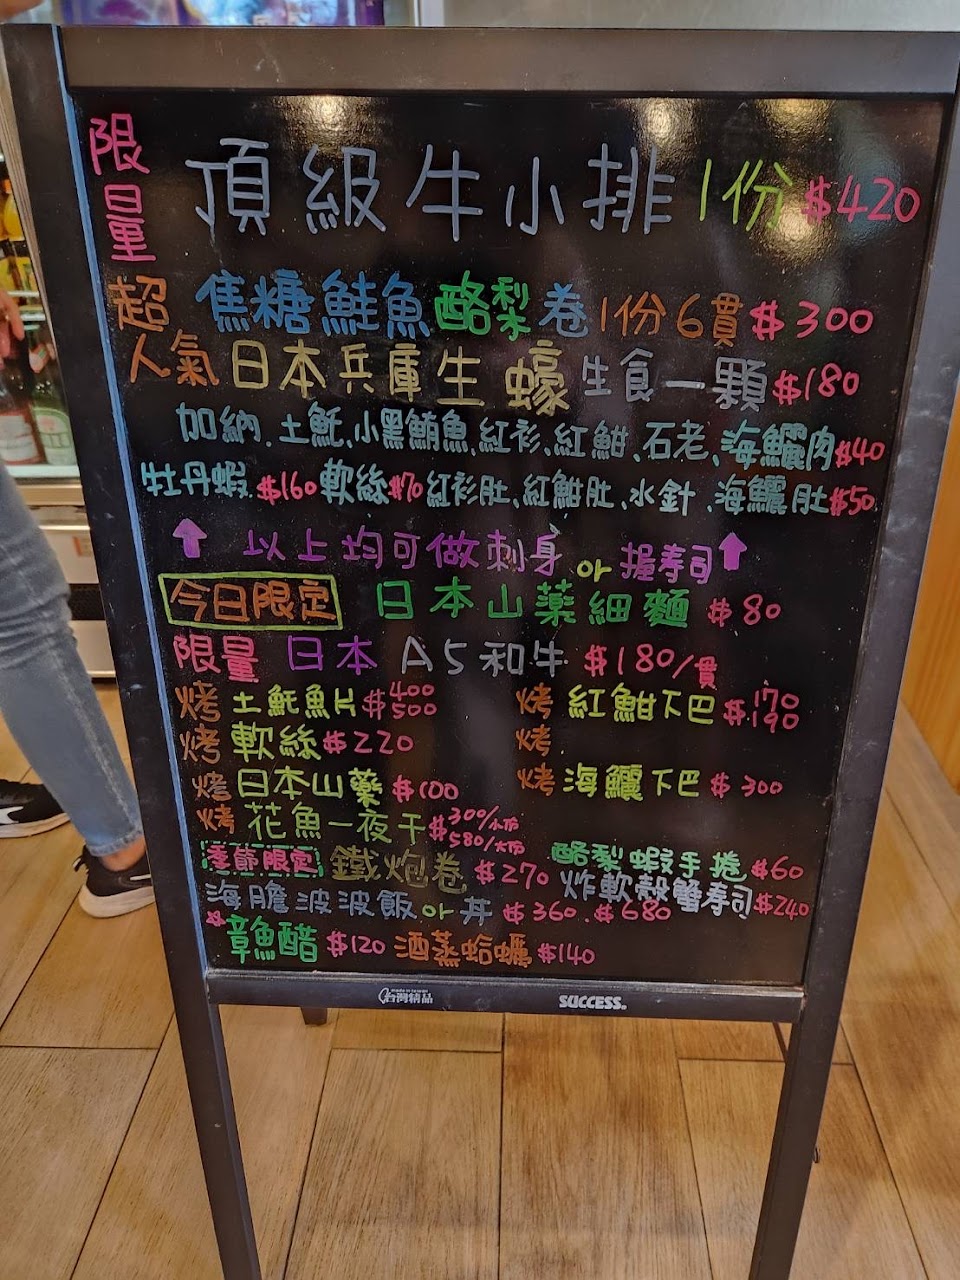 限量 頂級牛小排 1份 $420
超人氣 焦糖鮭魚酪梨卷 1份6貫 $300
日本兵庫生蠔 生食一顆 $180
加納、土魠、小黑鮪魚、紅衫、紅魽、石老、海鱺肉 $40
牡丹蝦 $160 軟絲 $70 紅衫肚、紅魽肚、水針、海鱺肚 $50
↑ 以上均可做刺身 or 握壽司 ↑
今日限定 日本山藥細麵 $80
限量 日本A5和牛 $180/貫
烤 土魠魚片 $400 500 烤 紅魽下巴 $170 $190
烤 軟絲 $220 烤
烤 日本山藥 $100 烤 海鱺下巴 $300
烤 花魚一夜干 $300/小份 580/大份
季節限定 鐵炮卷 $270 酪梨蝦手捲 $60
炸軟殼蟹壽司 $240
海膽波波飯 or 丼 $360、$680
章魚醋 $120 酒蒸蛤蠣 $140
made in taiwan
台灣精品 SUCCESS®